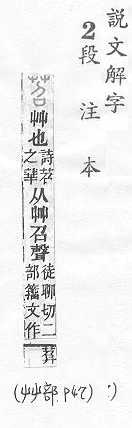 説文解字
2段注本
苕 艸也 詩苕之華 从艸召聲 徒聊切二部籒文作
(艸部. P47) :)